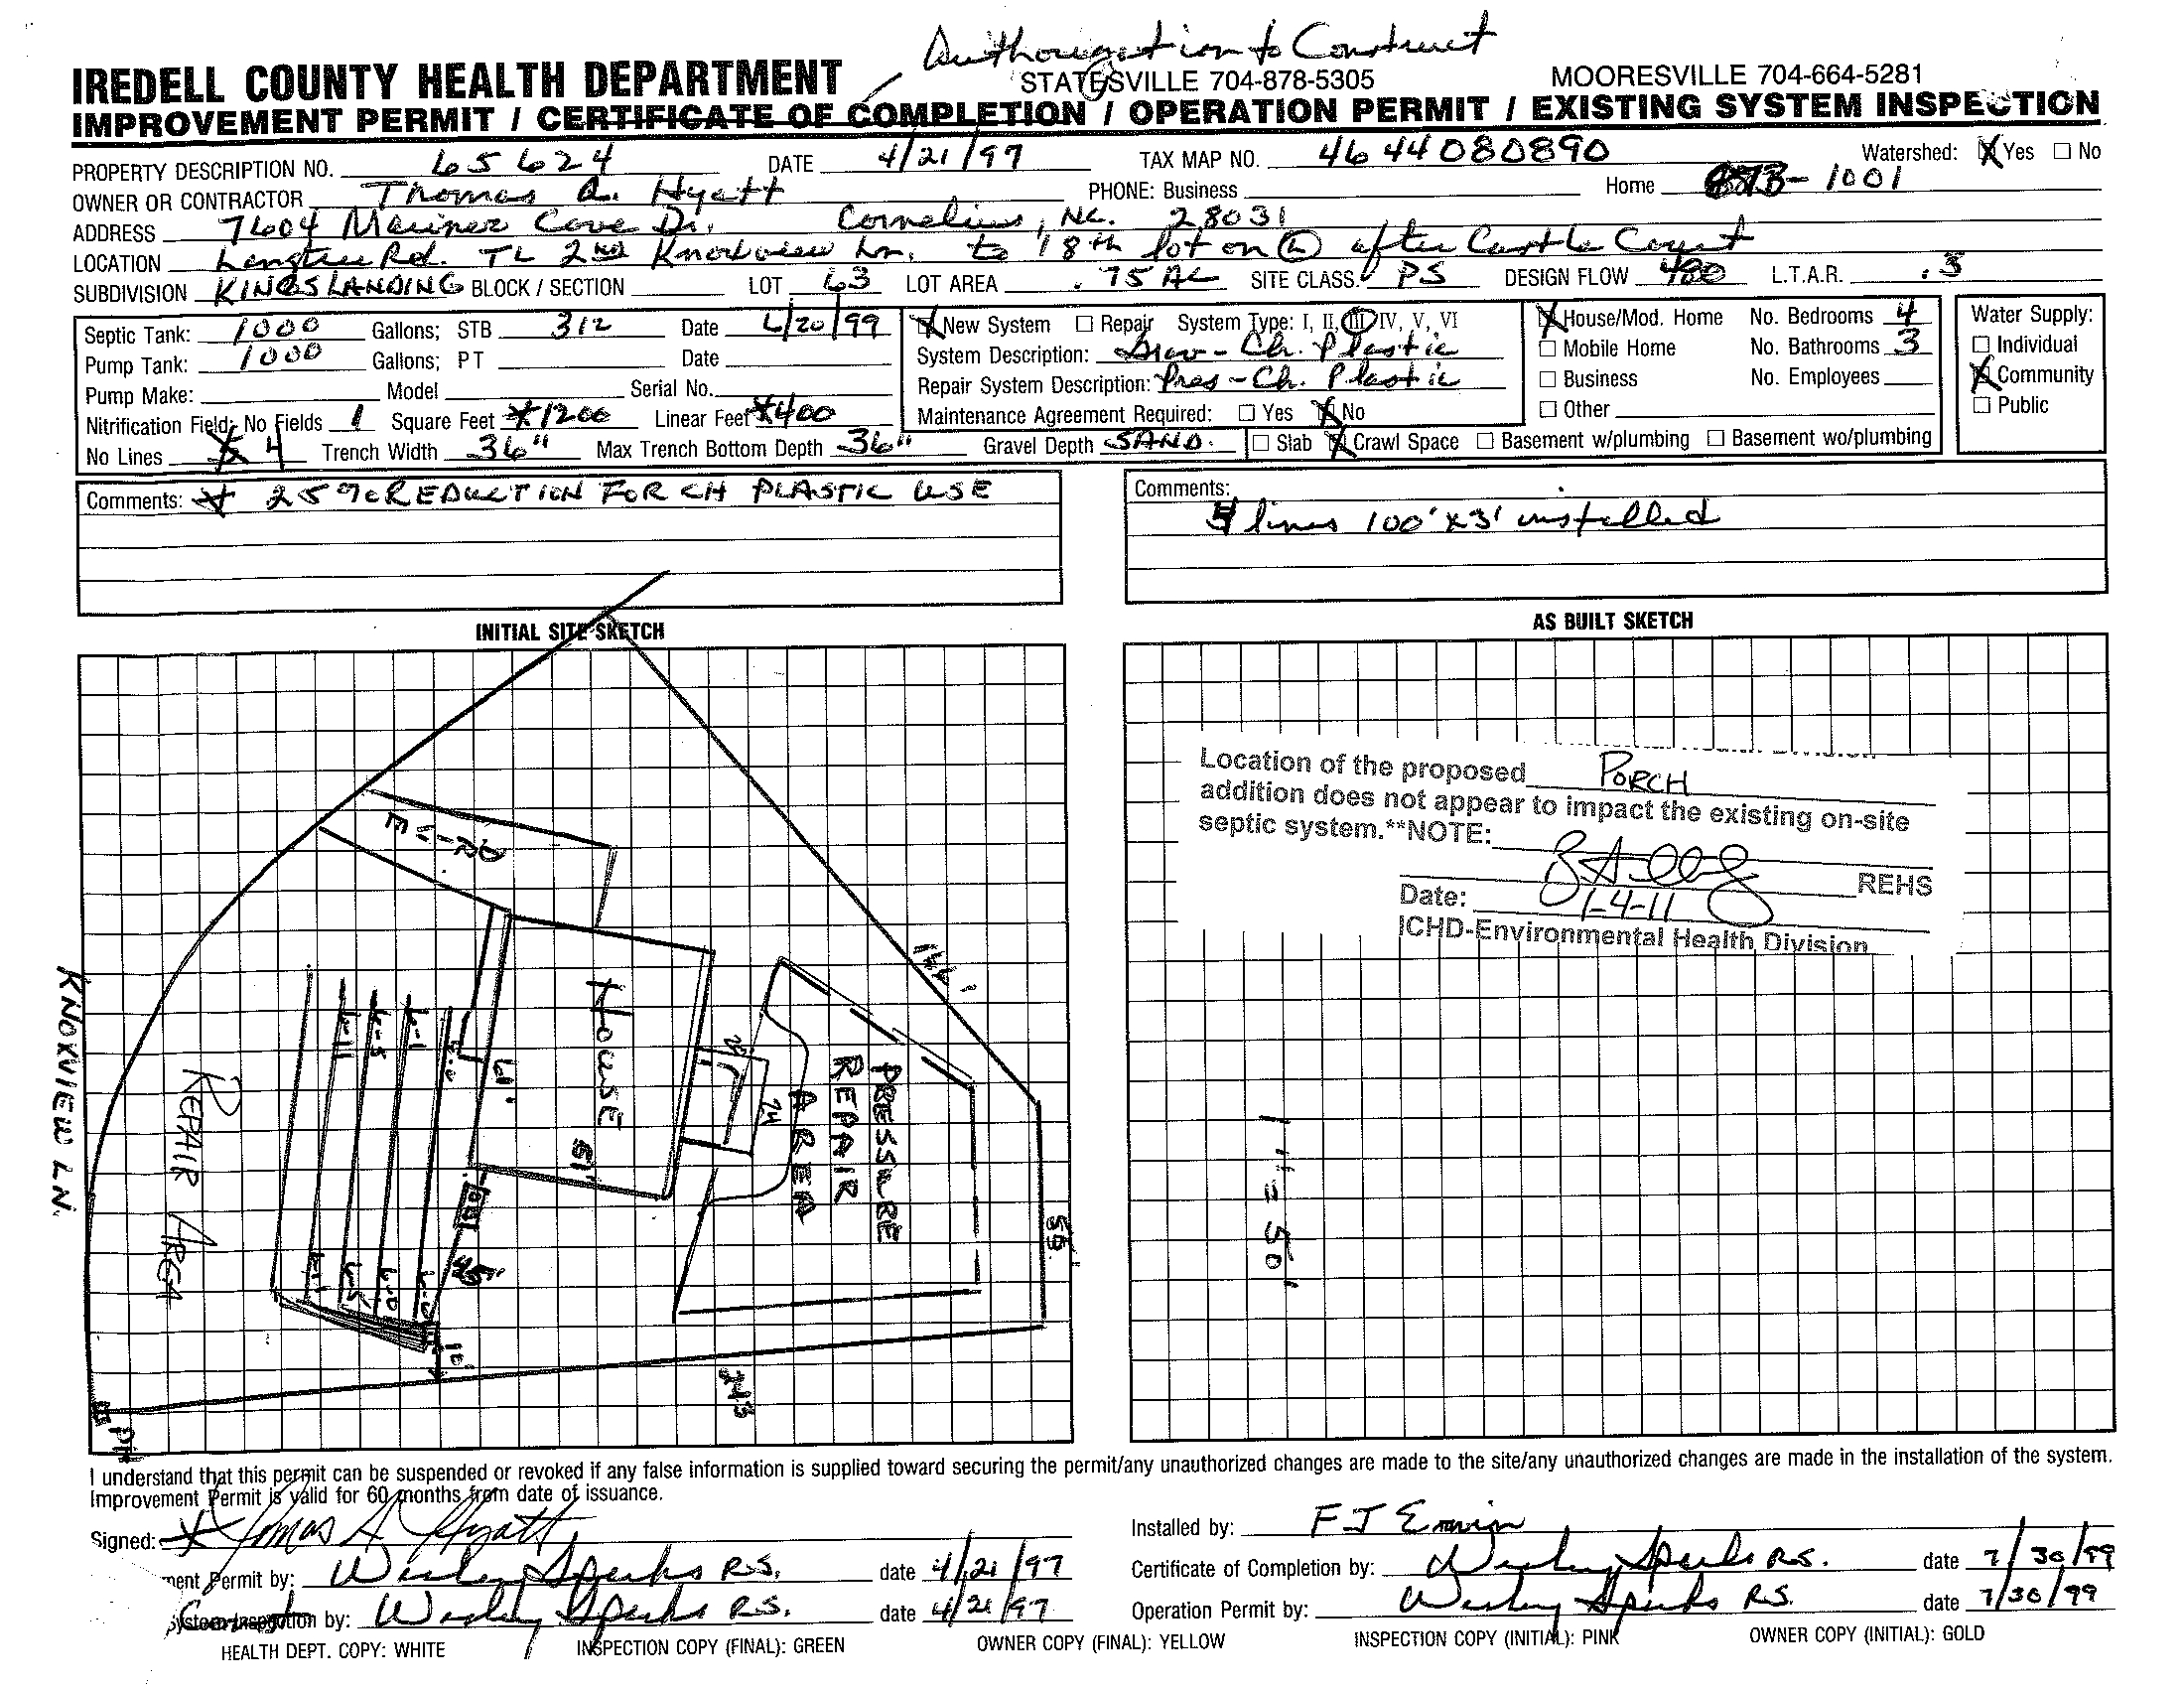 Authorization to Construct
IREDELL COUNTY HEALTH DEPARTMENT STATESVILLE 704-878-5305 MOORESVILLE 704-664-5281
IMPROVEMENT PERMIT / CERTIFICATE OF COMPLETION / OPERATION PERMIT / EXISTING SYSTEM INSPECTION
PROPERTY DESCRIPTION NO. 65624 DATE 4/21/97 TAX MAP NO. 4644080890 Watershed: X Yes ☐ No
OWNER OR CONTRACTOR Thomas A. Hyatt PHONE: Business Home -1001
ADDRESS 7604 Mariner Cove Dr. Cornelius, NC. 28031
LOCATION Langtree Rd. TL 2nd Knoxview Ln. to 18th lot on (L) after Castle Court
SUBDIVISION KINGS LANDING BLOCK / SECTION LOT 63 LOT AREA .75 AC SITE CLASS. PS DESIGN FLOW 480 L.T.A.R. .3
Septic Tank: 1000 Gallons; STB 312 Date 4/20/99
Pump Tank: 1000 Gallons; PT Date
Pump Make: Model Serial No.
Nitrification Field: No Fields 1 Square Feet *1200 Linear Feet *400
No Lines 4 Trench Width 36" Max Trench Bottom Depth 36" Gravel Depth SAND.
X New System ☐ Repair System Type: I, II, III, IV, V, VI
System Description: Grav-Ch. Plastic
Repair System Description: Pres-Ch. Plastic
Maintenance Agreement Required: ☐ Yes X No
X House/Mod. Home No. Bedrooms 4
☐ Mobile Home No. Bathrooms 3
☐ Business No. Employees
☐ Other
☐ Slab X Crawl Space ☐ Basement w/plumbing ☐ Basement wo/plumbing
Water Supply:
☐ Individual
X Community
☐ Public
Comments: * 25% REDUCTION FOR CH PLASTIC USE
Comments:
4 lines 100' x 3' installed
INITIAL SITE SKETCH
AS BUILT SKETCH
146'
HOUSE
61'
51'
24
PRESSURE
REPAIR
AREA
KNOXVIEW LN.
REPAIR AREA
6-11
6-5
6-1
6-0
6-11
6-5
6-0
6-0
45'
10'
55'
243
Pt
Location of the proposed PORCH
addition does not appear to impact the existing on-site
septic system.**NOTE:
REHS
Date: 1-4-11
ICHD-Environmental Health Division
1" = 50'
I understand that this permit can be suspended or revoked if any false information is supplied toward securing the permit/any unauthorized changes are made to the site/any unauthorized changes are made in the installation of the system.
Improvement Permit is valid for 60 months from date of issuance.
Signed: X Thomas A Hyatt
ment Permit by: Wesley Sparks R.S. date 4/21/97
System Inspection by: Wesley Sparks R.S. date 4/21/97
Installed by: F J Ervin
Certificate of Completion by: Wesley Sparks R.S. date 7/30/99
Operation Permit by: Wesley Sparks R.S. date 7/30/99
HEALTH DEPT. COPY: WHITE INSPECTION COPY (FINAL): GREEN OWNER COPY (FINAL): YELLOW INSPECTION COPY (INITIAL): PINK OWNER COPY (INITIAL): GOLD